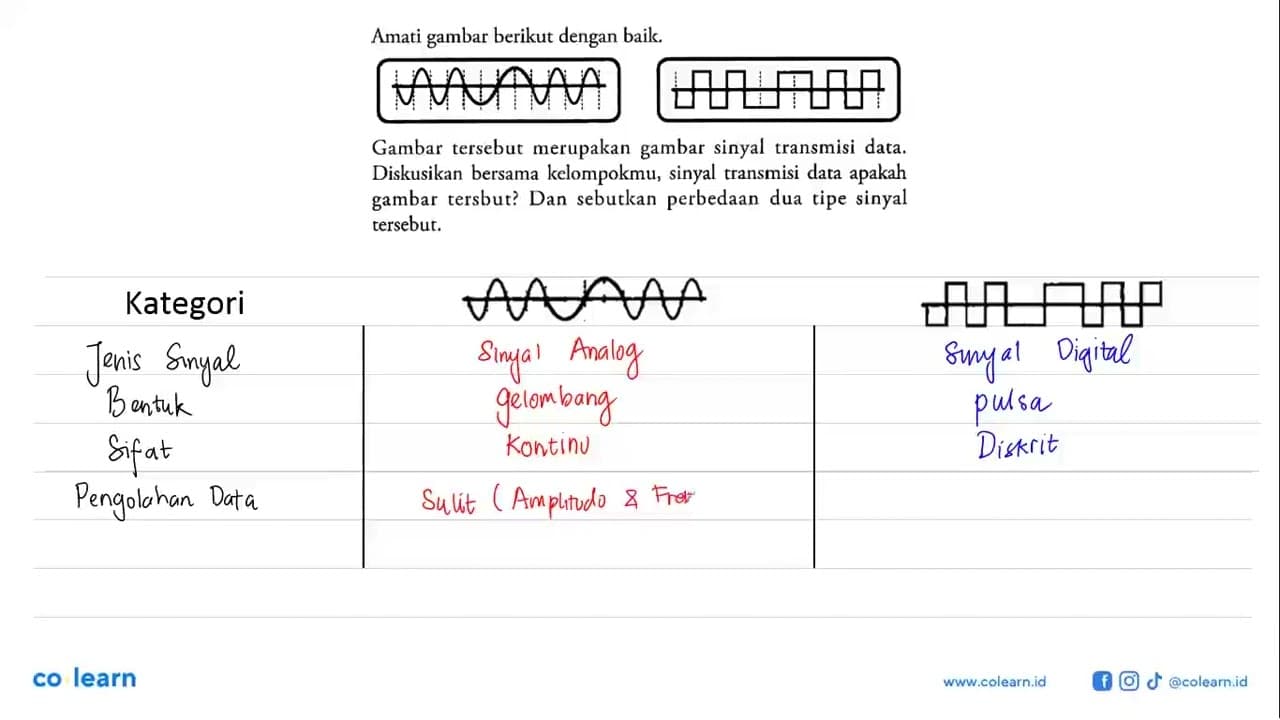 Amati gambar berikut dengan baik.
Gambar tersebut merupakan gambar sinyal transmisi data.
Diskusikan bersama kelompokmu, sinyal transmisi data apakah
gambar tersbut? Dan sebutkan perbedaan dua tipe sinyal
tersebut.
Kategori
Jenis Sinyal Sinyal Analog Sinyal Digital
Bentuk gelombang pulsa
Sifat Kontinu Diskrit
Pengolahan Data Sulit (Amplitudo &
co learn www.colearn.id @colearn.id